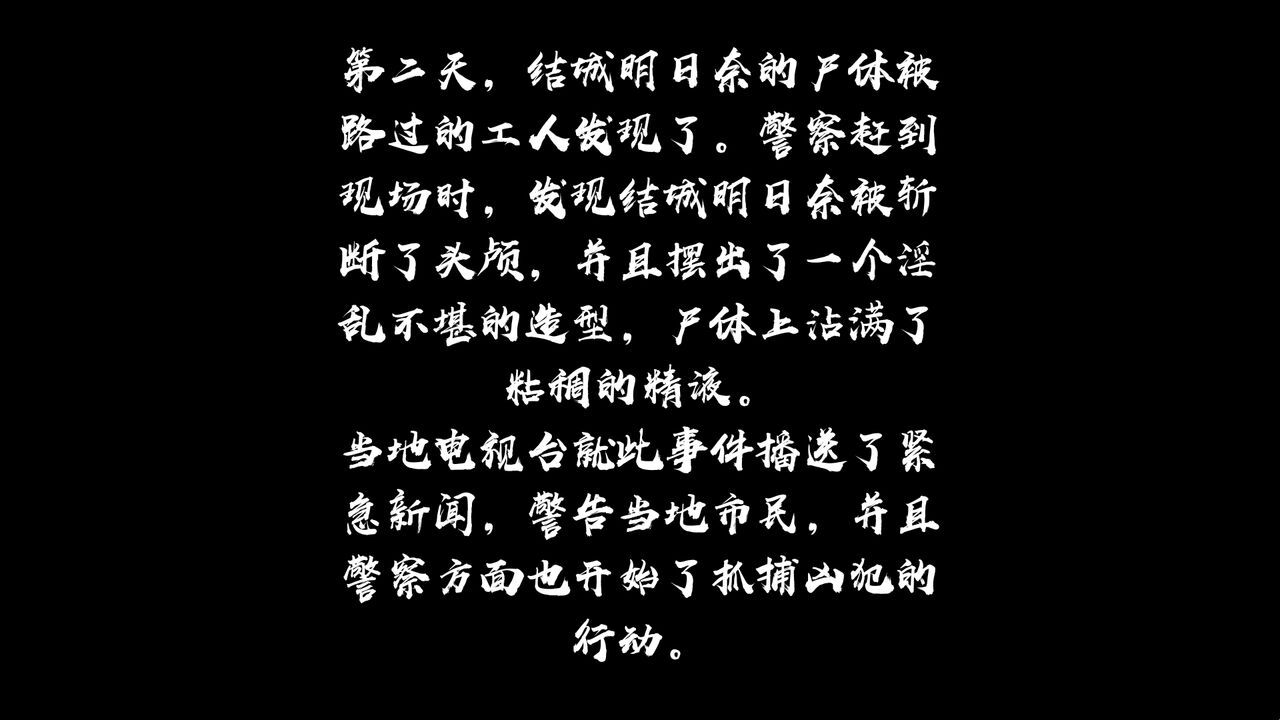 第二天，结城明日奈的尸体被
路过的工人发现了。警察赶到
现场时，发现结城明日奈被斩
断了头颅，并且摆出了一个淫
乱不堪的造型，尸体上沾满了
粘稠的精液。
当地电视台就此事件播送了紧
急新闻，警告当地市民，并且
警察方面也开始了抓捕凶犯的
行动。